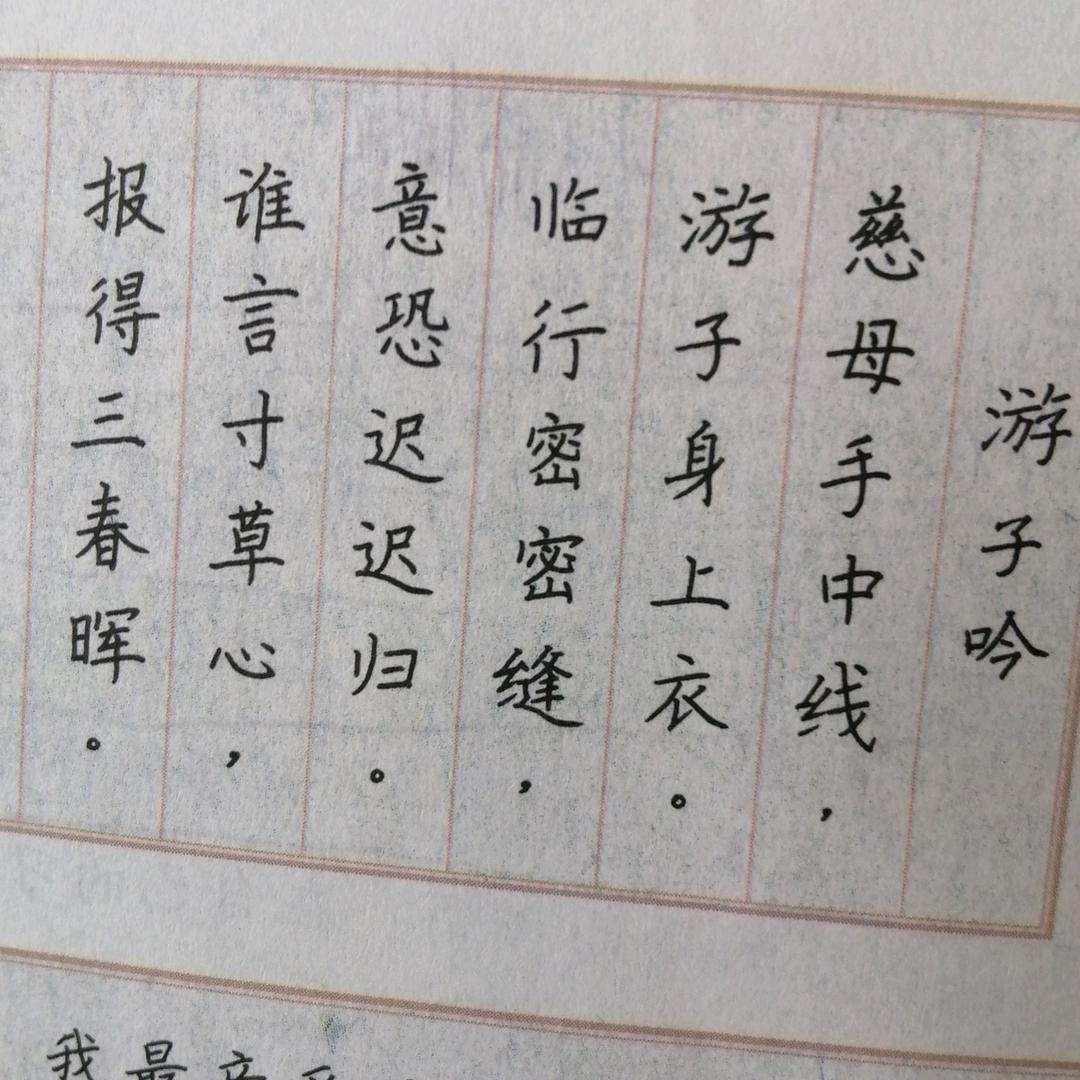 游子吟
慈母手中线，
游子身上衣。
临行密密缝，
意恐迟迟归。
谁言寸草心，
报得三春晖。
我最